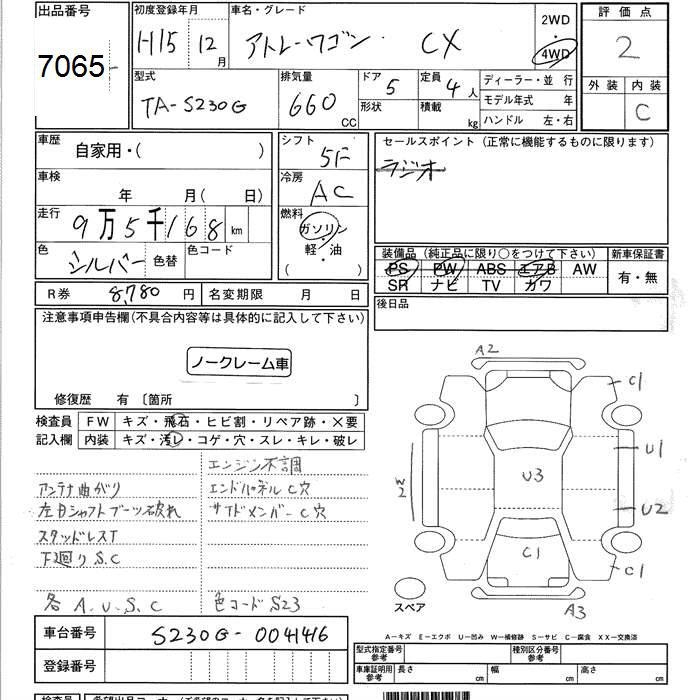 出品番号 初度登録年月 車名・グレード 2WD 評価点
7065 H15 12月 アトレーワゴン CX 4WD 2
型式 排気量 ドア 5 定員 4人 ディーラー・並 行 外装 内装
TA-S230G 660 CC 形状 積載 kg モデル年式 年 C
ハンドル 左・右
車歴 シフト セールスポイント(正常に機能するものに限ります)
自家用・( ) 5F ラジオ
車検 冷房
年 月(日) AC
走行 燃料
9万5千168km ガソリン
色 シルバー 色替 色コード 軽・油 装備品(純正品に限り○をつけて下さい) 新車保証書
( ) PS PW ABS エアB AW 有・無
R券 8,780円 名変期限 月 日 SR ナビ TV カワ
注意事項申告欄(不具合内容等は具体的に記入して下さい) 後日品
ノークレーム車
修復歴 有 〔箇所 〕
検査員 FW キズ・飛石・ヒビ割・リペア跡・×要
記入欄 内装 キズ・汚レ・コゲ・穴・スレ・キレ・破レ
エンジン不調
アンテナ曲がり エンドパネルC穴
左右シャフトブーツ破れ サイドメンバーC穴
スタッドレスT
下廻りS.C
各A.U.S.C 色コードS23
A2
C1
U1
U3
W2
U2
C1
C1
A3
スペア
車台番号 S230G-0041416
登録番号
A-キズ E-エクボ U-凹み W-補修跡 S-サビ C-腐食 XX-交換済
型式指定番号 参考 種別区分番号 参考
車庫証明用 参考 長さ cm 幅 cm 高さ cm